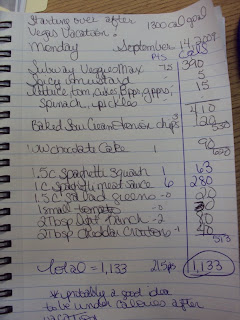 Starting over after 1300 cal goal
Vegas Vacation!
Monday September 14, 2009
pts Cals
Subway Veggie Max 7.5 390
Spicy mustard 5
lettuce, tom, cukes, gr.pprs,
spinach, pickles 15
410
Baked Sour Cream & onion chips 120
530
WW chocolate Cake 1 90
620
1.5C Spaghetti Squash 1 63
1C Spaghetti meat sauce 6 280
1.5C salad greens -0 20
1 small tomato -0 30
2Tbsp Light Ranch -2 80
2Tbsp Cheddar Croutons -1 40
513
total = 1,133 21.5pts 1,133
*probably a good idea
to be under calories after
vacation